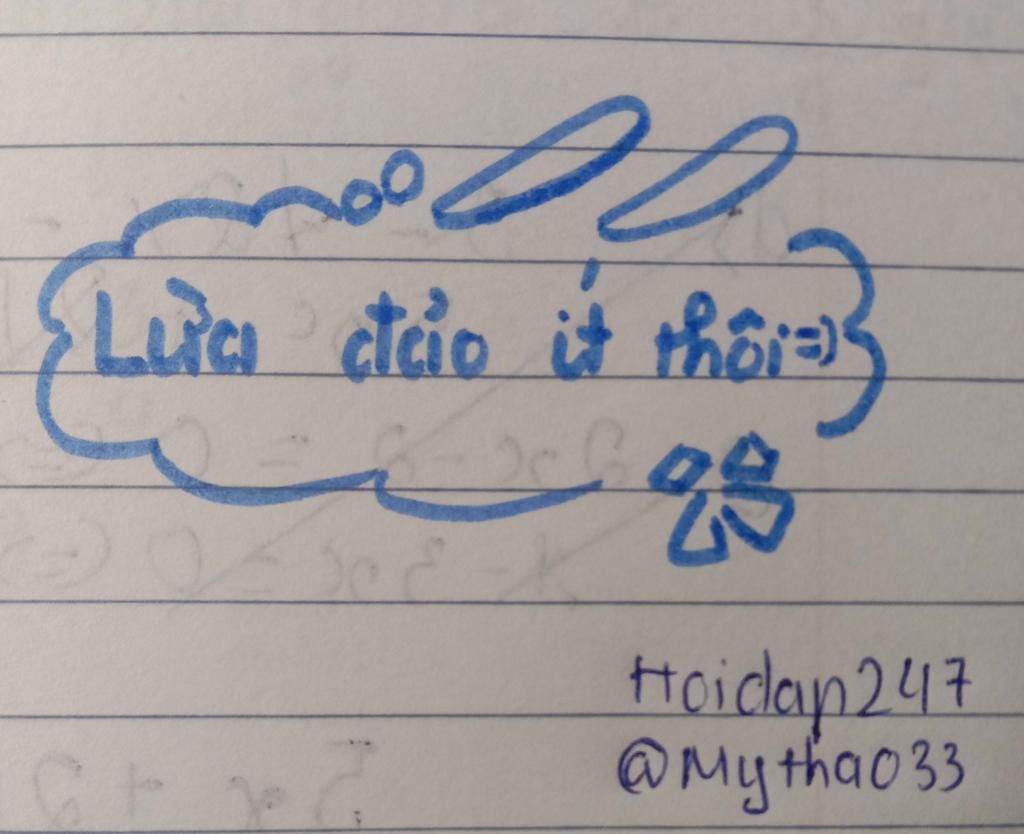 Lừa đảo ít thôi=)
Hoidap247
@Mytha033